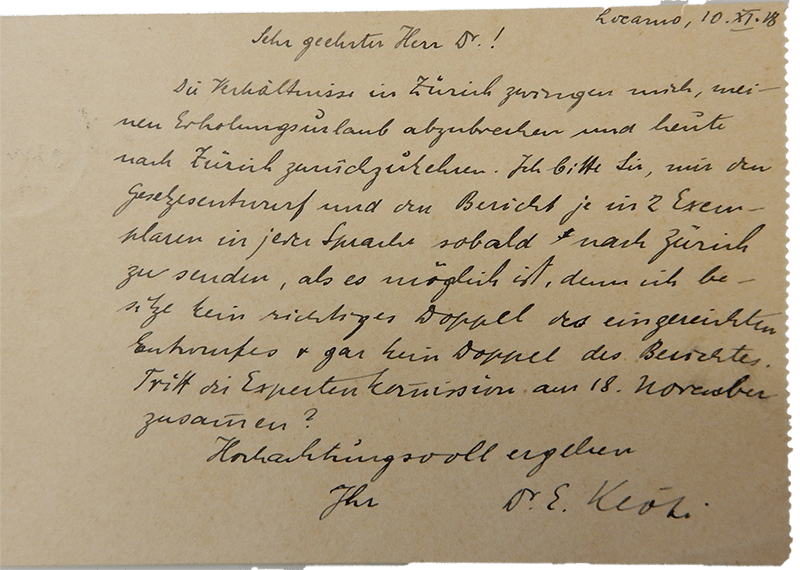 Locarno, 10.XI.18
Sehr geehrter Herr Dr.!
Die Verhältnisse in Zürich zwingen mich, mei-
nen Erholungsurlaub abzubrechen und heute
nach Zürich zurückzukehren. Ich bitte Sie, mir den
Gesetzesentwurf und den Bericht je in 2 Exem-
plaren in jeder Sprache sobald nach Zürich
zu senden, als es möglich ist, denn ich be-
sitze kein richtiges Doppel des eingereichten
Entwurfes & gar kein Doppel des Berichtes.
Tritt die Expertenkom̅ission am 18. November
zusam̅en?
Hochachtungsvoll ergeben
Ihr Dr. E. Klöti.